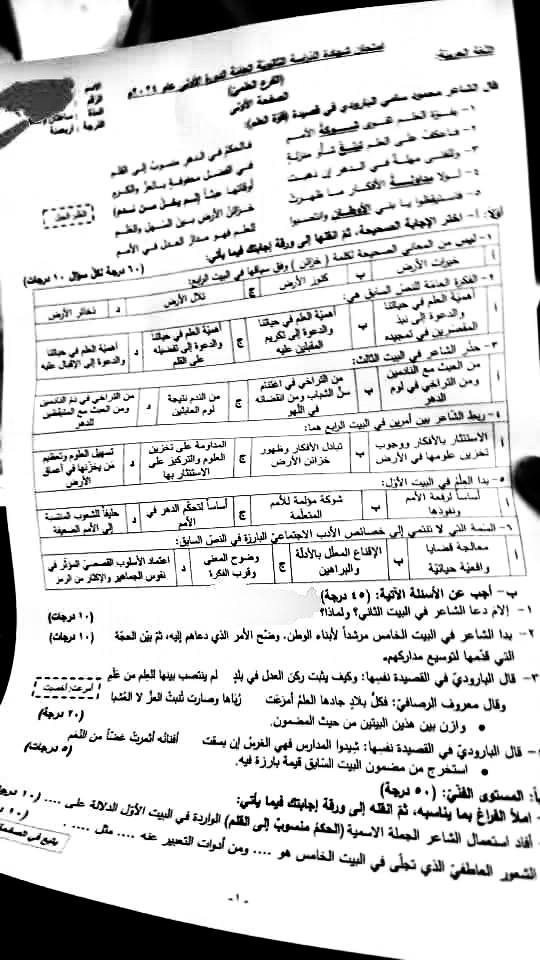 اللغة العربية:
امتحان شهادة الدراسة الثانوية العامة الدورة الأولى عام ٢٠٢٤م
(الفرع العلمي)
الصفحة الأولى
الاسم
الرقم
المدة:
الدرجة: أربعمئة
قال الشاعر محمود سامي البارودي في قصيدة (قوة العلم):
١- بقوة العلم تقوى شوكة الأمم فالحكم في الدهر منسوب إلى القلم
٢- فاعكف على العلم تبلغ شأو منزلة في الفضل محفوفة بالعز والكرم
٣- وللفتى مهلة في الدهر إن ذهبت أوقاتها عبثاً لم يخل من ندم
٤- لولا مداولة الأفكار ما ظهرت خزائن الأرض بين السهل والعلم
٥- فاستيقظوا يا بني الأوطان وانتصبوا للعلم فهو مدار العدل في الأمم
العلم: الجبل
أولاً: أ- اختر الإجابة الصحيحة، ثم انقلها إلى ورقة إجابتك فيما يأتي: (٦٠ درجة لكل سؤال ١٠ درجات)
١- ليس من المعاني الصحيحة لكلمة (خزائن) وفق سياقها في البيت الرابع:
أ خيرات الأرض ب كنوز الأرض ج تلال الأرض د ذخائر الأرض
٢- الفكرة العامة للنص السابق هي:
أ أهمية العلم في حياتنا والدعوة إلى نبذ المقصرين في تمجيده ب أهمية العلم في حياتنا والدعوة إلى تكريم المقبلين عليه ج أهمية العلم في حياتنا والدعوة إلى تفضيله على القلم د أهمية العلم في حياتنا والدعوة إلى الإقبال عليه
٣- حذر الشاعر في البيت الثالث:
أ من العبث مع النادمين ومن التراخي في لوم الدهر ب من التراخي في اغتنام سن الشباب ومن انقضائه في اللهو ج من الندم نتيجة لوم العابثين د من التراخي في ذم النادمين ومن العبث مع المنقبضين للدهر
٤- ربط الشاعر بين أمرين في البيت الرابع هما:
أ الاستئثار بالأفكار ووجوب تخزين علومها في الأرض ب تبادل الأفكار وظهور خزائن الأرض ج المداومة على تخزين العلوم والتركيز على الاستئثار بها د تسهيل العلوم وتعظيم من يخزنها في أعماق الأرض
٥- بدا العلم في البيت الأول:
أ أساساً لرفعة الأمم ونفوذها ب شوكة مؤلمة للأمم المتعلمة ج أساساً لتحكم الدهر في الأمم د حليفاً للشعوب المنتسبة إلى الأمم الضعيفة
٦- السمة التي لا تنتمي إلى خصائص الأدب الاجتماعي البارزة في النص السابق:
أ معالجة قضايا واقعية حياتية ب الإقناع المعلل بالأدلة والبراهين ج وضوح المعنى وقرب الفكرة د اعتماد الأسلوب القصصي المؤثر في نفوس الجماهير والإكثار من الرمز
ب- أجب عن الأسئلة الآتية: (٤٥ درجة)
١- إلام دعا الشاعر في البيت الثاني؟ ولماذا؟ (١٠ درجات)
٢- بدا الشاعر في البيت الخامس مرشداً لأبناء الوطن. وضح الأمر الذي دعاهم إليه، ثم بين الحجة (١٠ درجات)
التي قدمها لتوسيع مداركهم.
٣- قال البارودي في القصيدة نفسها: وكيف يثبت ركن العدل في بلدٍ لم ينتصب بينها للعلم من علمِ
وقال معروف الرصافي: فكل بلادٍ جادها العلم أمرعت رباها وصارت تنبت العز لا العشبا
أمرعت: أخصبت
• وازن بين هذين البيتين من حيث المضمون. (٢٠ درجة)
- قال البارودي في القصيدة نفسها: شيدوا المدارس فهي الغرس إن بسقت أفنانه أثمرت غضاً من النعم
• استخرج من مضمون البيت السابق قيمة بارزة فيه. (٥ درجات)
المستوى الفني: (٥٠ درجة)
- املأ الفراغ بما يناسبه، ثم انقله إلى ورقة إجابتك فيما يأتي:
- أفاد استعمال الشاعر الجملة الاسمية (الحكم منسوب إلى القلم) الواردة في البيت الأول الدلالة على .... (١٠ درجات)
الشعور العاطفي الذي تجلى في البيت الخامس هو .... ومن أدوات التعبير عنه .... مثل ....
يتبع في الصفحة
-١-